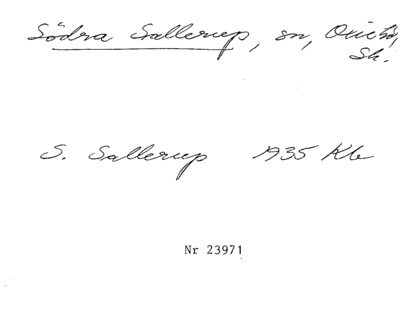 Södra Sallerup, sn, Oxie hd,
Sk.
S. Sallerup 1935 Kle
Nr 23971